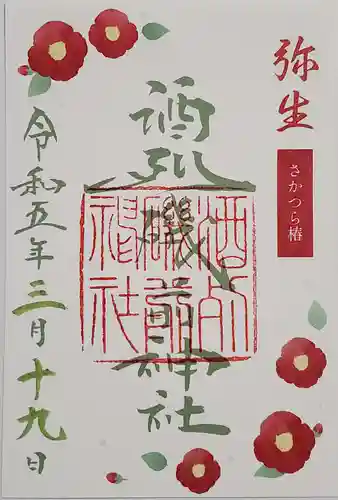 弥生
さかつら椿
酒列磯前神社
令和五年三月十九日
酒列
磯前
神社